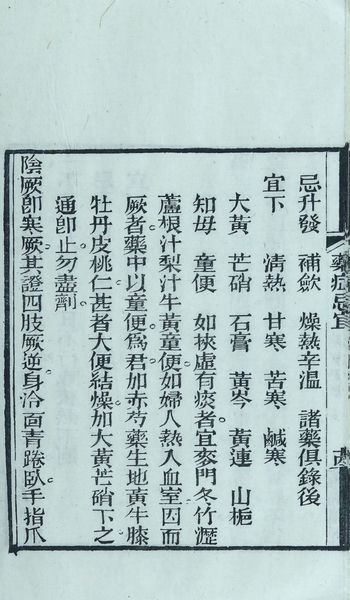 藥病忌宜
忌升發　補斂　燥熱辛温　諸藥俱錄後
宜下　清熱　甘寒　苦寒　鹹寒
大黃　芒硝　石膏　黃芩　黃連　山梔
知母　童便　如挾虛有痰者宜麥門冬竹瀝
蘆根汁梨汁牛黃童便如婦人熱入血室因而
厥者藥中以童便爲君加赤芍藥生地黃牛膝
牡丹皮桃仁甚者大便結燥加大黃芒硝下之
通卽止勿盡劑
陰厥卽寒厥其證四肢厥逆身冷面青踡臥手指爪